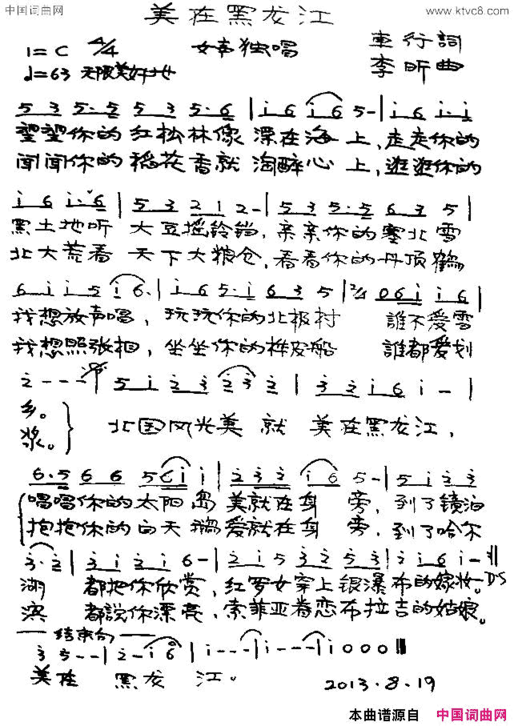 中国词曲网
www.ktvc8.com
美在黑龙江
1=C 4/4 女声独唱 车行詞
♩=63 无限美好地 李昕曲
5 3 5·5 5 3 5·6 | i 6 i 6 5 - | i 6 i·i
望望你的红松林像漂在海上,走走你的
闻闻你的稻花香就淘醉心上,逛逛你的
i 6 i·6 | 5 3 2 1 2 - | 5 3 5·5 6 3 5 |
黑土地听大豆摇铃铛,亲亲你的塞北雪
北大荒看天下大粮仓,看看你的丹顶鹤
6 i i 5 i 6· | i 6 5·i 6 3 5 | 2/4 0 6 i i 6 |
我想放声唱,玩玩你的北极村 誰不爱雪
我想照张相,坐坐你的桦皮船 誰都爱划
2 - - - | 5 i 2 3 2 3 2 | 3 2 i 6 i - |
乡。
浆。
北国风光美就美在黑龙江,
6·5 6 6 5 6 i i | 2 3 3 i 6 5 - | 5 i 2 3
唱唱你的太阳岛美就在身旁,到了镜泊
抱抱你的白天鹅爱就在身旁,到了哈尔
3·2 | 3 i 2 i 6 - | 2 i 5 3 2 5 3 | 2 i 6 i - :|| D.S
湖都把你欣赏,红罗女穿上银瀑布的嫁妆。
滨都說你漂亮,索菲亚眷恋布拉吉的姑娘。
结束句
3 5 - - | 2 - i 6 | i - - - | i - - - | i 0 0 0 ||
美在黑龙江。
2013.8.19
本曲谱源自 中国词曲网